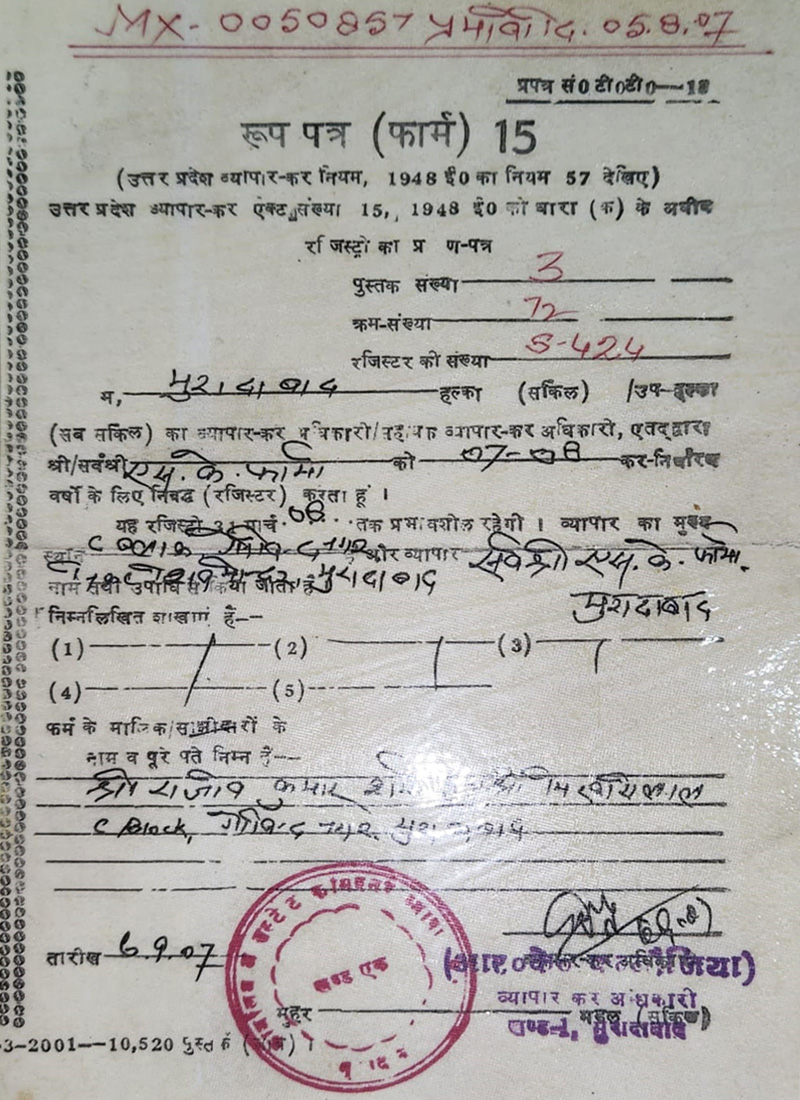 MX-0050857 प्रभावी दि. 05.8.07
प्रपत्र सं0 टी0टी0—18
रूप पत्र (फार्म) 15
(उत्तर प्रदेश व्यापार-कर नियम, 1948 ई0 का नियम 57 देखिए)
उत्तर प्रदेश व्यापार-कर एक्ट संख्या 15, 1948 ई0 की धारा (क) के अधीन
रजिस्ट्री का प्र ण-पत्र
पुस्तक संख्या 3
क्रम-संख्या 72
रजिस्टर की संख्या S-424
म, मुरादाबाद हल्का (सर्किल) /उप-हल्का
(सब सर्किल) का व्यापार-कर अधिकारी/सहायक व्यापार-कर अधिकारी, एतद्द्वारा
श्री/सर्वश्री एस. के. फार्मा को 07-08 कर-निर्धारण
वर्षों के लिए निबद्ध (रजिस्टर) करता हूं ।
यह रजिस्ट्री 31 मार्च 08 तक प्रभावशील रहेगी । व्यापार का मुख्य
स्थान C ब्लाक और व्यापार सर्वश्री एस. के. फार्मा.
नाम तथा उपाधि से किया जाता है मुरादाबाद
मुरादाबाद
निम्नलिखित शाखाएं हैं--
(1) (2) (3)
(4) (5)
फर्म के मालिक/साझीदारों के
नाम व पूरे पते निम्न हैं--
श्री राजीव कुमार
C Block, गोविन्द नगर मुरादाबाद
तारीख 6.9.07
खण्ड एक
मुहर
व्यापार कर अधिकारी
मंडल (सर्किल)
खण्ड-1, मुरादाबाद
3-2001--10,520 पुस्तकें